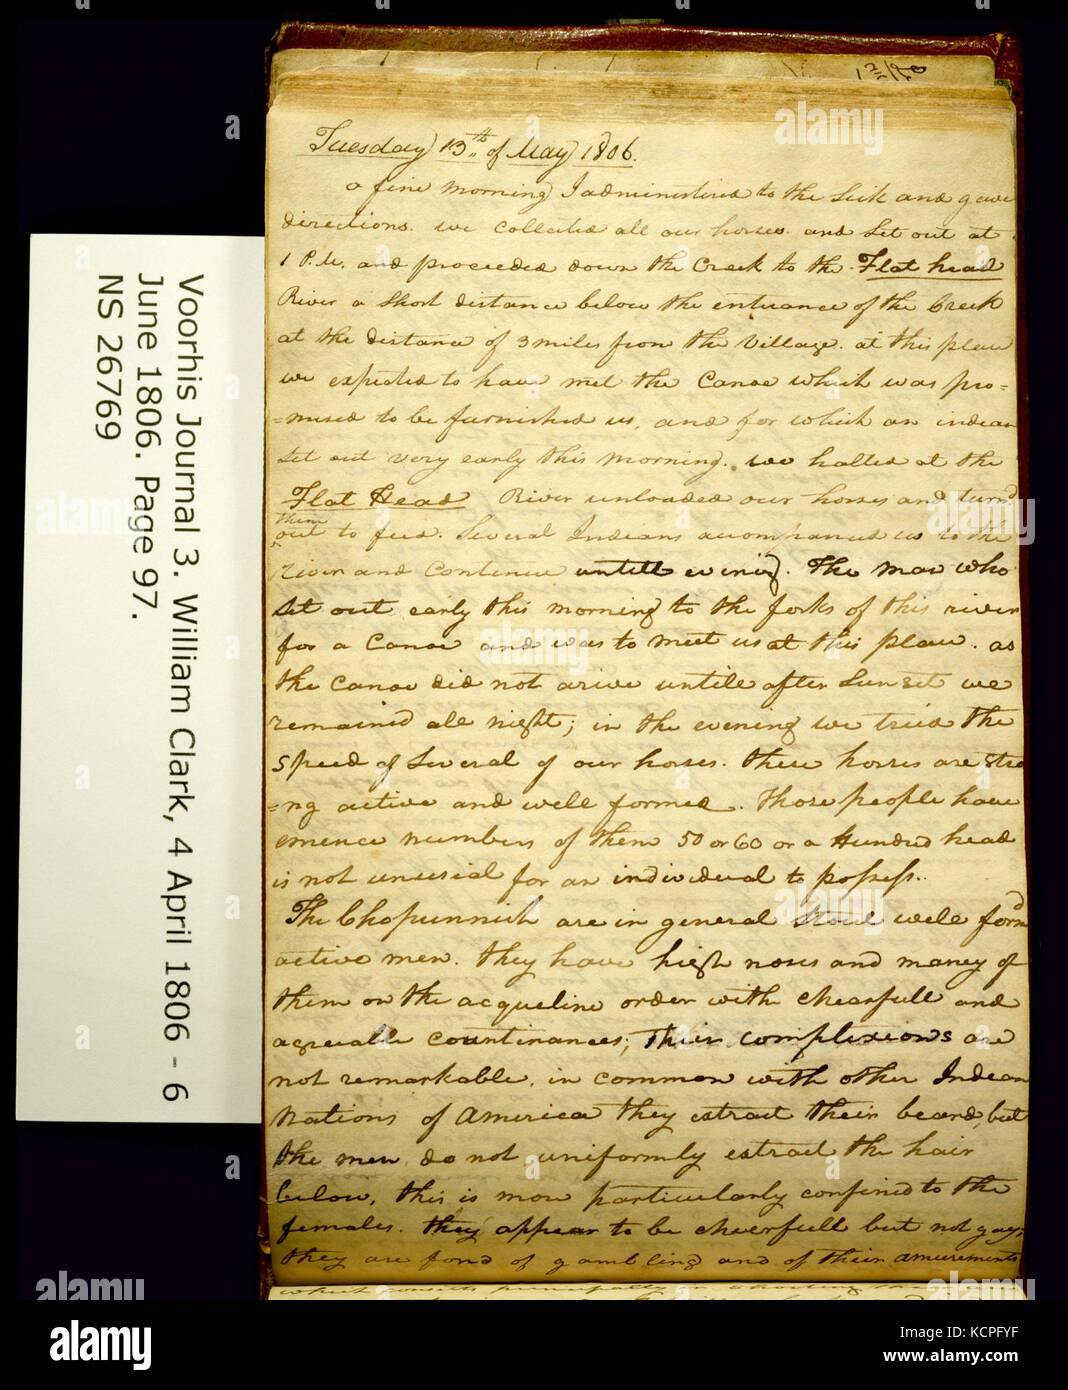 Tuesday 13th of May 1806.
a fine morning I administered to the Sick and gave
directions. we collected all our horses and Set out at
1 P.M. and proceeded down the Creek to the Flat head
River a Short distance below the enterance of the Creek
at the distance of 3 miles from the Village. at this place
we expected to have met the Canoe which was pro=
=mised to be furnished us, and for which an indian
Set out very early this morning. we halted at the
Flat Head River unloaded our horses and turnd
them
out to feed. Several Indians accompanied us to the
river and Continue untill evening. The man who
Set out early this morning to the forks of this river
for a Canoe and was to meet us at this place. as
the Canoe did not arive untill after Sunset we
remained all night; in the evening we tried the
Speed of Several of our horses. these horses are stro
=ng active and well formed. Those people have
emence numbers of them 50 or 60 or a Hundred head
is not unusial for an individual to possess.
The Chopunnish are in general Stout well formd
active men. they have high noses and maney of
them on the acqueline order with chearfull and
agreeable countinances; their complexions are
not remarkable. in common with other Indian
Nations of America they extract their beard, but
the men do not uniformly extract the hair
below, this is more particularly confined to the
females. they appear to be cheerfull but not gay,
they are fond of gambling and of their amusements
which consists principally in shooting their
Voorhis Journal 3. William Clark, 4 April 1806 - 6
June 1806. Page 97.
NS 26769
alamy
a
Image ID: KCPFYF
www.alamy.com